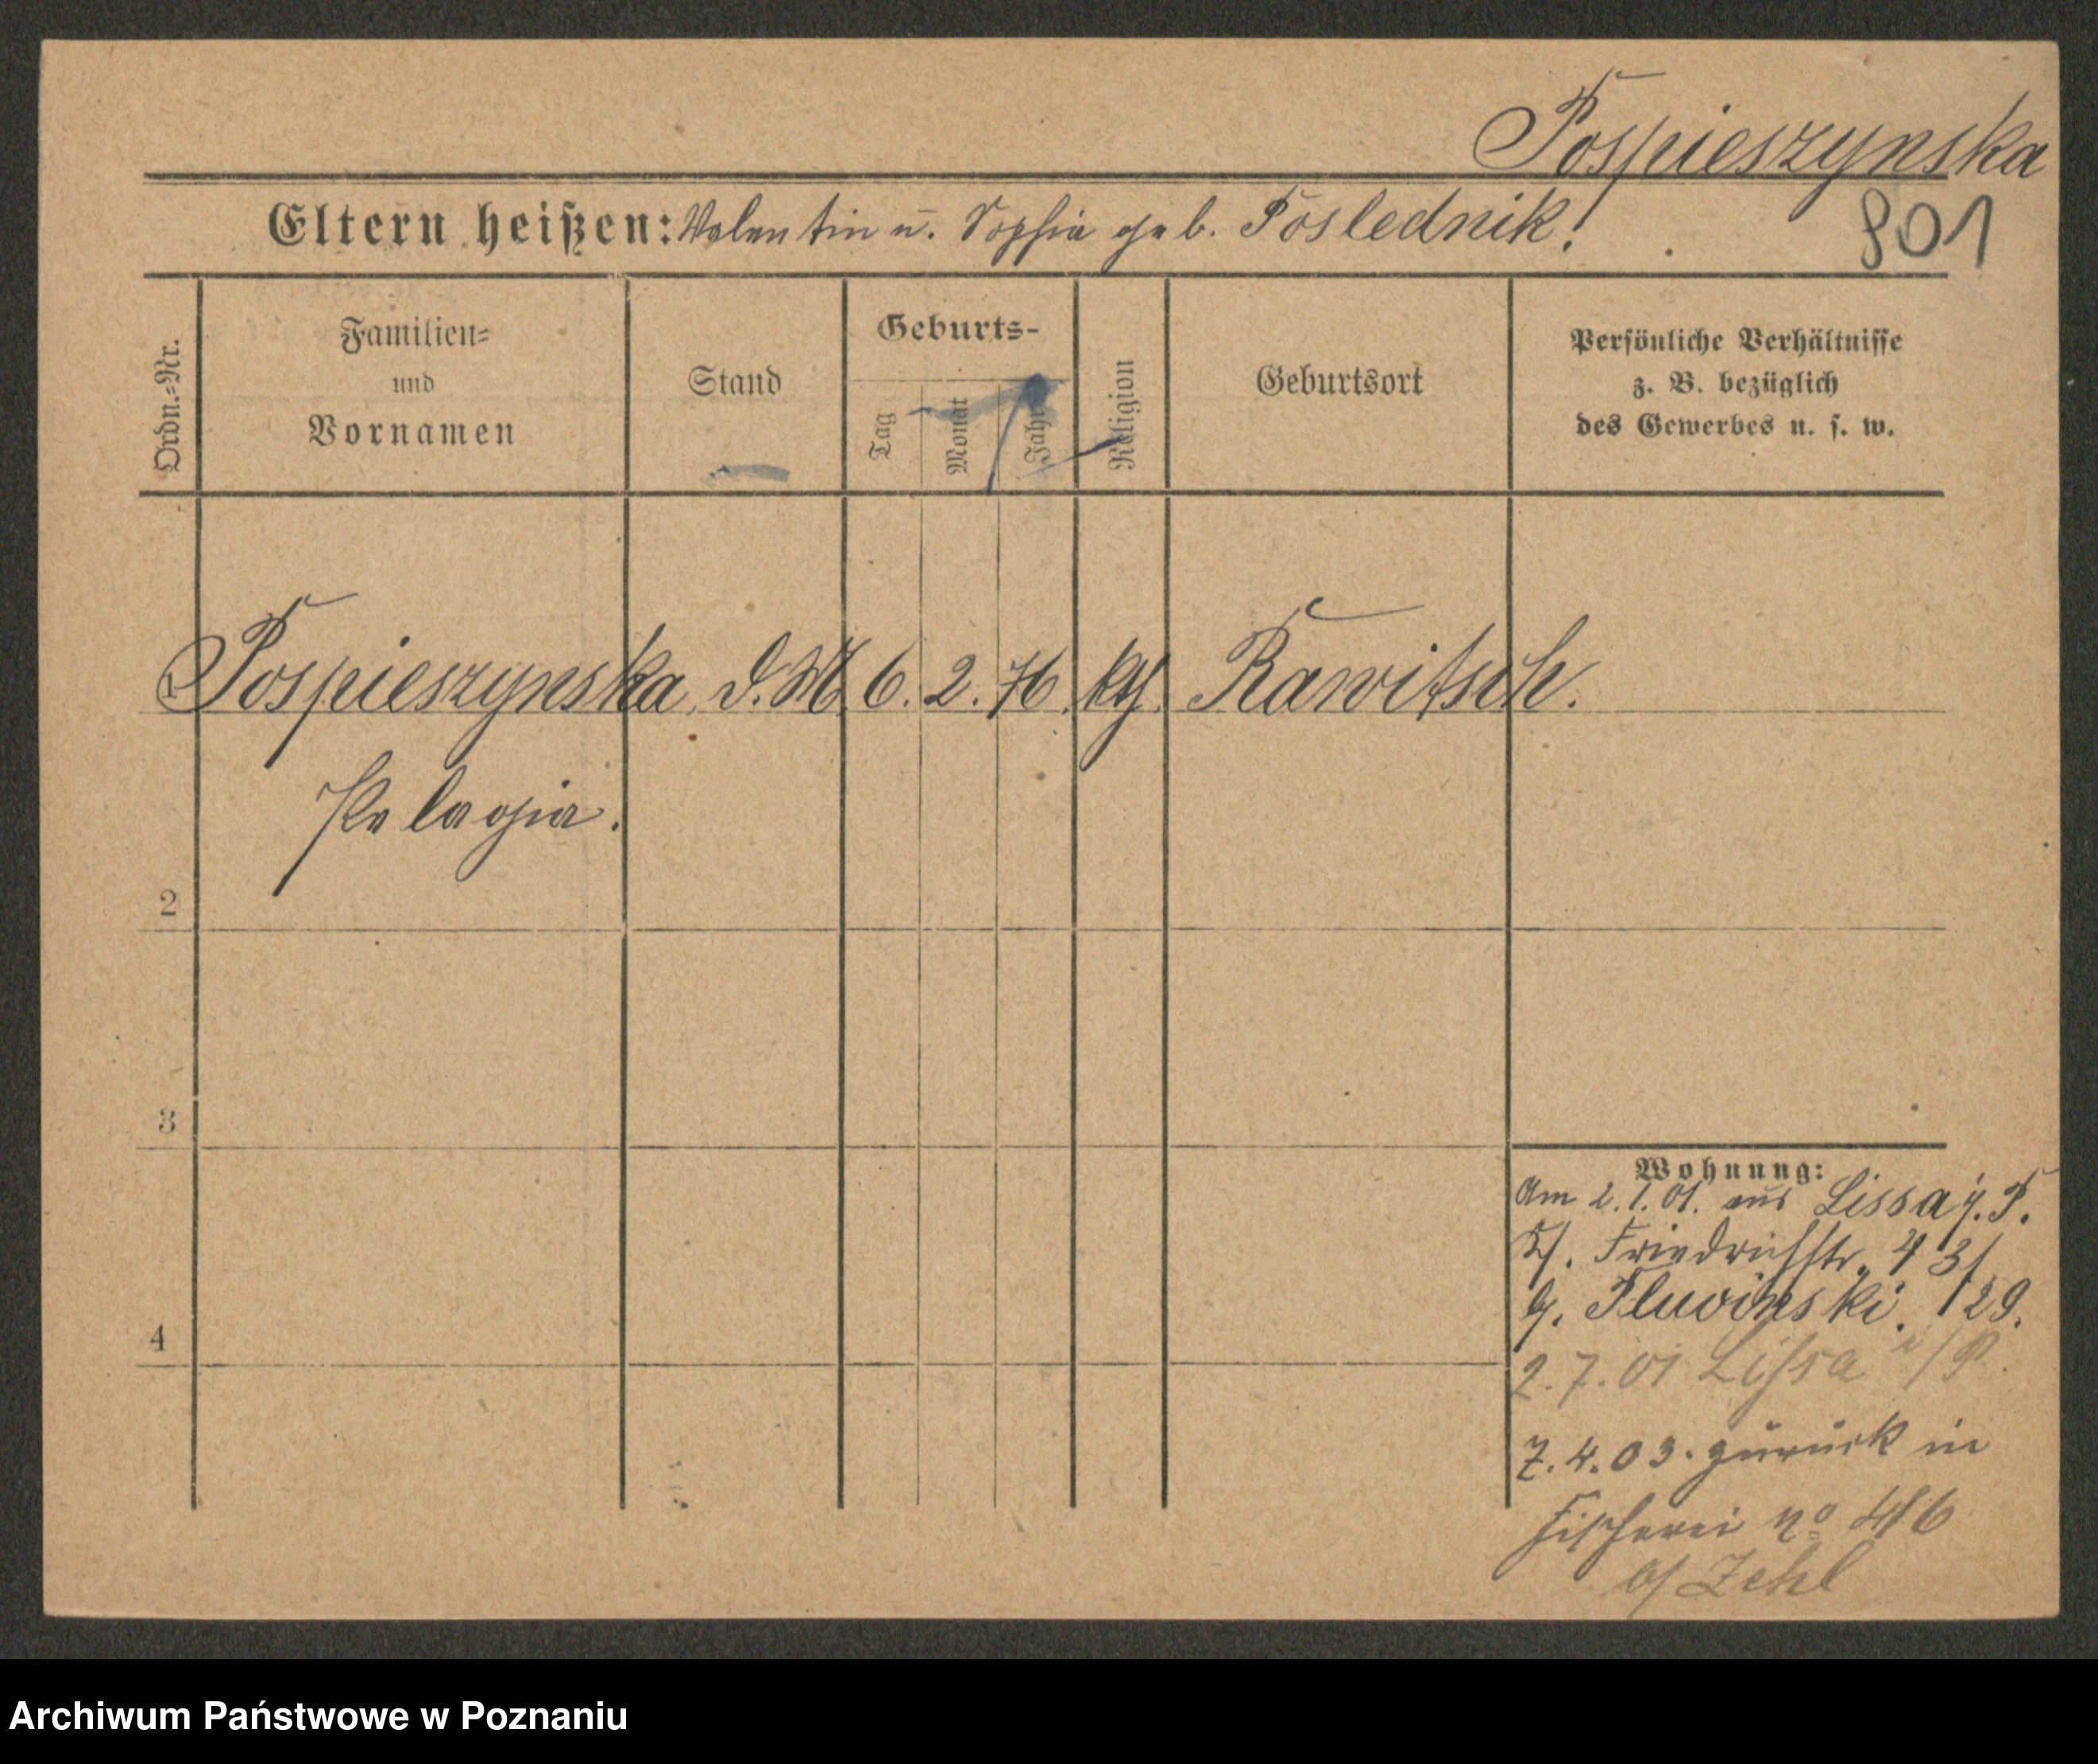 Pospieszynska
Eltern heißen: Valentin u. Sophia geb. Poslednik!
801
Ordn.=Nr.
Familien=
und
Vornamen
Stand
Geburts-
Tag
Monat
Jahr
Religion
Geburtsort
Persönliche Verhältnisse
z. B. bezüglich
des Gewerbes u. s. w.
1 Pospieszynska D.M. 6. 2. 76. kth. Rawitsch.
Pelagia.
2
3
4
Wohnung:
Am 2.1.01. aus Lissa i. P.
Friedrichstr. 31
b. Pluvinski. 129.
2.7.01 Lissa i/P.
7.4.03. zurück in
Fischerei No
b/ Zehl
Archiwum Państwowe w Poznaniu